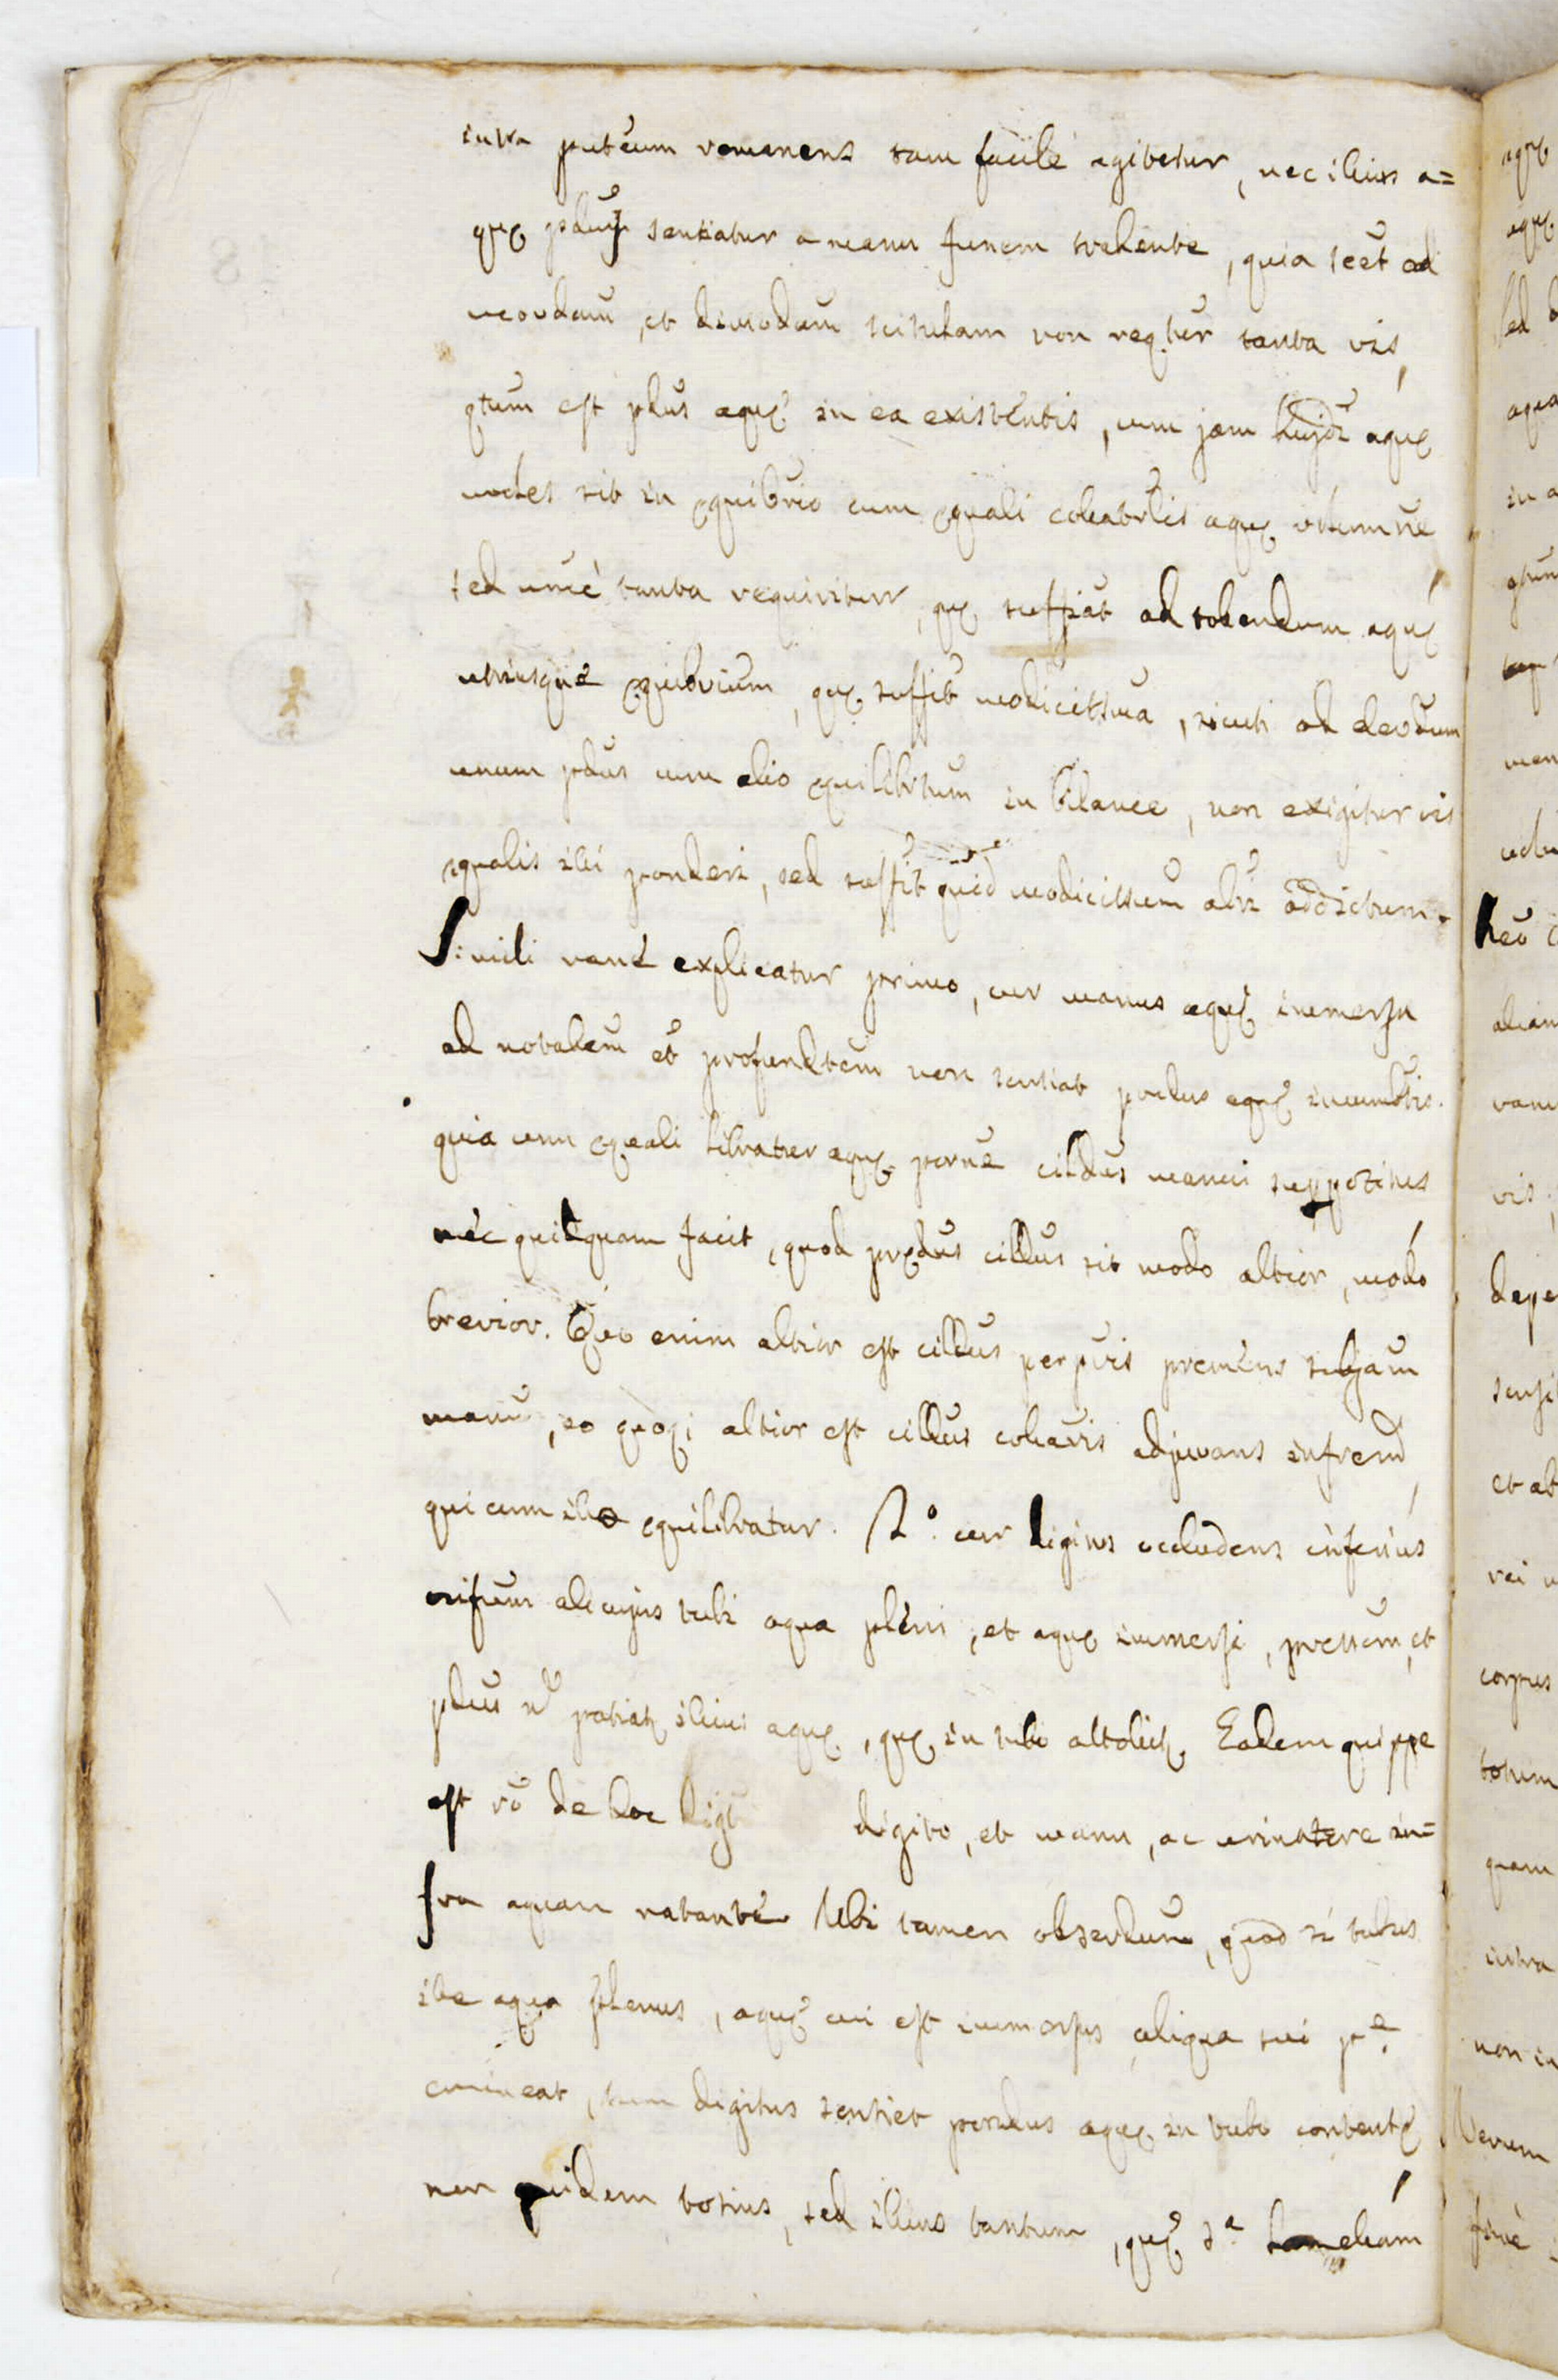 intra puteum remanens tam facilè agitetur, nec illius a=
quę pdus sentiatur a manu funem trahente, quia scet ad
movdam, et dimodam situlam non reqtur tanta vis,
qtum est pdus aquę in ea existentis, cum jam hujus aquę
moles sit in ęquibrio cum ęquali colatrlis aquę
sed unicè tanta requiritur, quę suffiat ad tollendum aquę
utriusque ęquibrium, quę suffit modicissima, sicuti ad elevdum
unum pdus cum alio ęquilibrtum in bilance, non exigitur vis
ęqualis illi ponderi, sed suffit quid modicissum altri additum.
Simili ranè explicatur primo, cur manus aquę immersa
ad notabem et profundtem non sentiat pondus aquę incumbtis.
quia cum ęquali libratur aquę porne cildus manui suppositus
nèc quidquam facit, quod prędus cillus sit modo altior, modò
brevior. Quo enim altior est cillus perpuis premens subjam
manu, eo quoq; altior est cillus colauis adjuvans infrend
qui cum illo ęquilibratur. 2º. cur digitus occludens inferius
orifium alicujus tubi aqua pleni, et aquę immersi, pressem, et
pdus nō patiatr illius aquę, quę in tubo attollitr. Eadem quippe
est rō de hoc digito, et manu, ac urinatore in=
fra aquam natante. Ubi tamen observdum, quod si tubus
ille aqua plenus, aquę cui est immersus aliqua sui pe.
emineat, tum digitus sentiet pondus aquę in tubo contentę
non quidem totius, sed illius tantum, quę sa